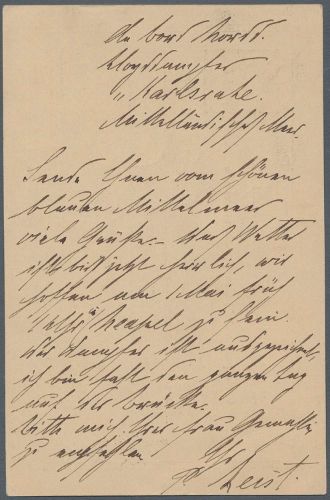 An bord Nordd.
Lloyddampfer
„Karlsruhe.
Mittelländisches Meer.
Sende Ihnen vom schönen
blauen Mittelmeer
viele Grüße. – Das Wetter
ist bis jetzt herrlich, wir
hoffen am 1 Mai früh
Uhr Neapel zu sein.
Der Dampfer ist ausgezeichnet,
ich bin fast den ganzen Tag
auf der Brücke.
Bitte mich Ihrer Frau Gemahlin
zu empfehlen
Ihr
Leist.